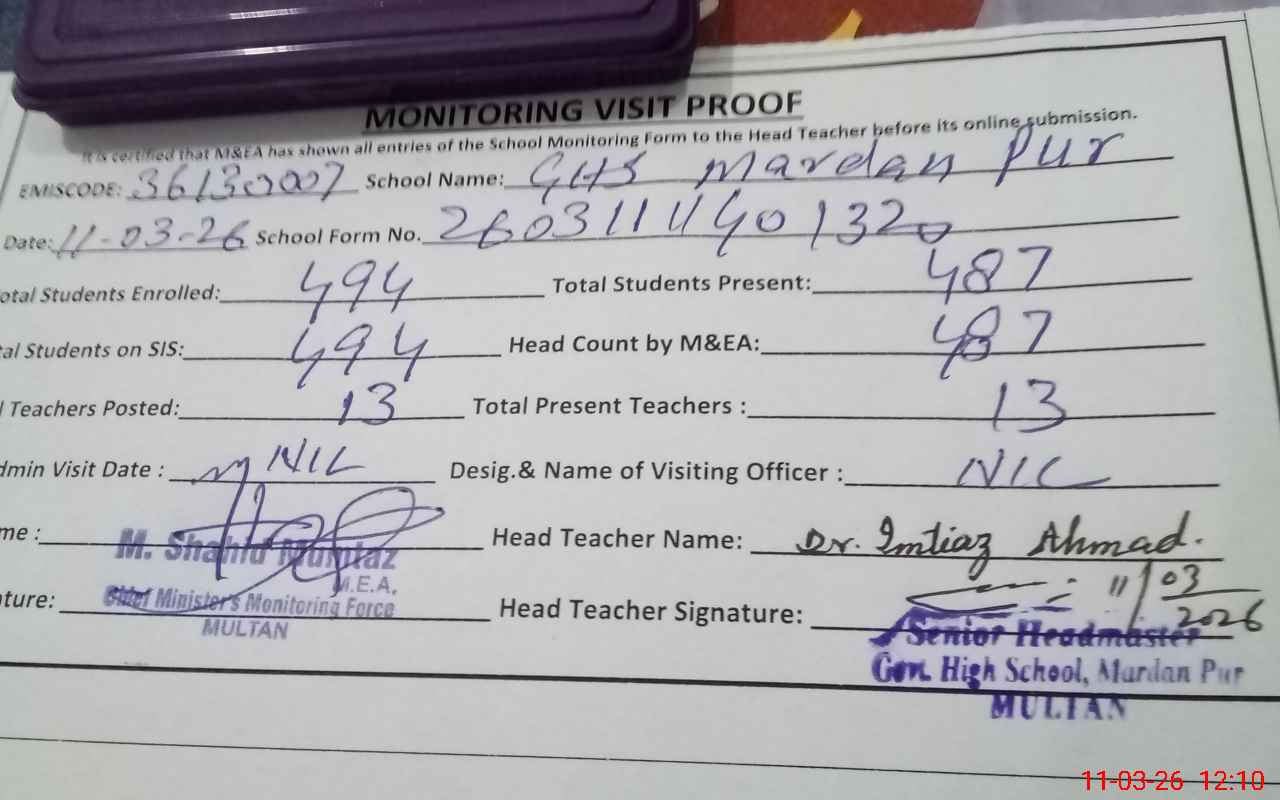 MONITORING VISIT PROOF
It is certified that M&EA has shown all entries of the School Monitoring Form to the Head Teacher before its online submission.
EMISCODE: 36130007 School Name: GHS Mardan Pur
Date: 11-03-26 School Form No. 26031111401320
otal Students Enrolled: 494 Total Students Present: 487
al Students on SIS: 494 Head Count by M&EA: 487
l Teachers Posted: 13 Total Present Teachers : 13
dmin Visit Date : NIL Desig.& Name of Visiting Officer : NIL
me : M. Shahid Mumtaz Head Teacher Name: Dr. Imtiaz Ahmad.
M.E.A.
11/03/2026
ture: Chief Minister's Monitoring Force Head Teacher Signature:
MULTAN
Senior Headmaster
Gov. High School, Mardan Pur
MULTAN
11-03-26 12:10